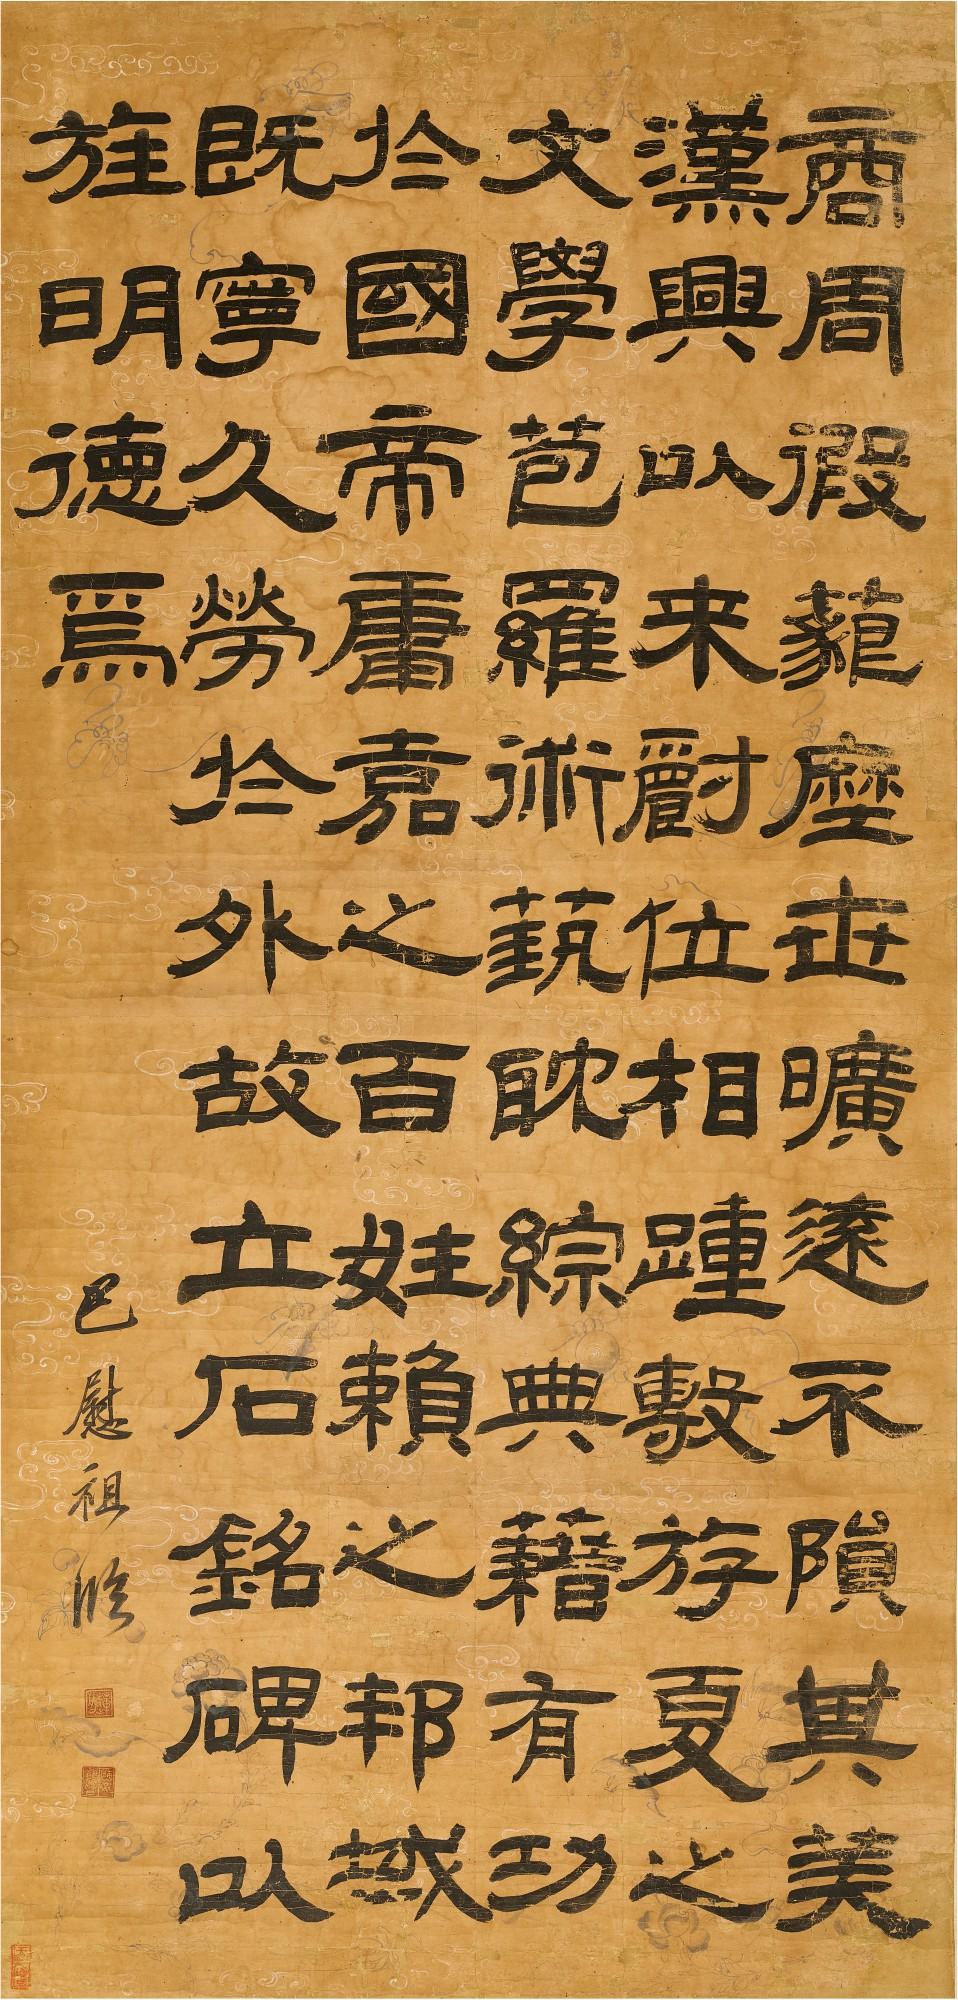 商周假藐歷世曠遠不隕其美
漢興以来爵位相踵𢾾㳺夏之
文學苞羅術蓺眈綜典藉有功
於國帝庸嘉之百姓賴之邦域
既寧久勞於外故立石銘碑以
旌明德焉
巴慰祖臨